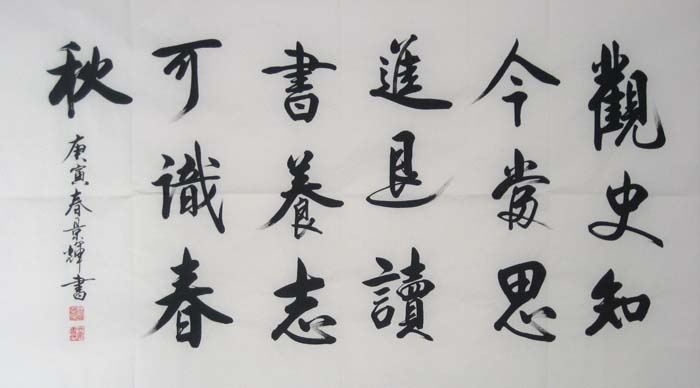 觀史知
今當思
進退讀
書養志
可識春
秋
庚寅春景輝書